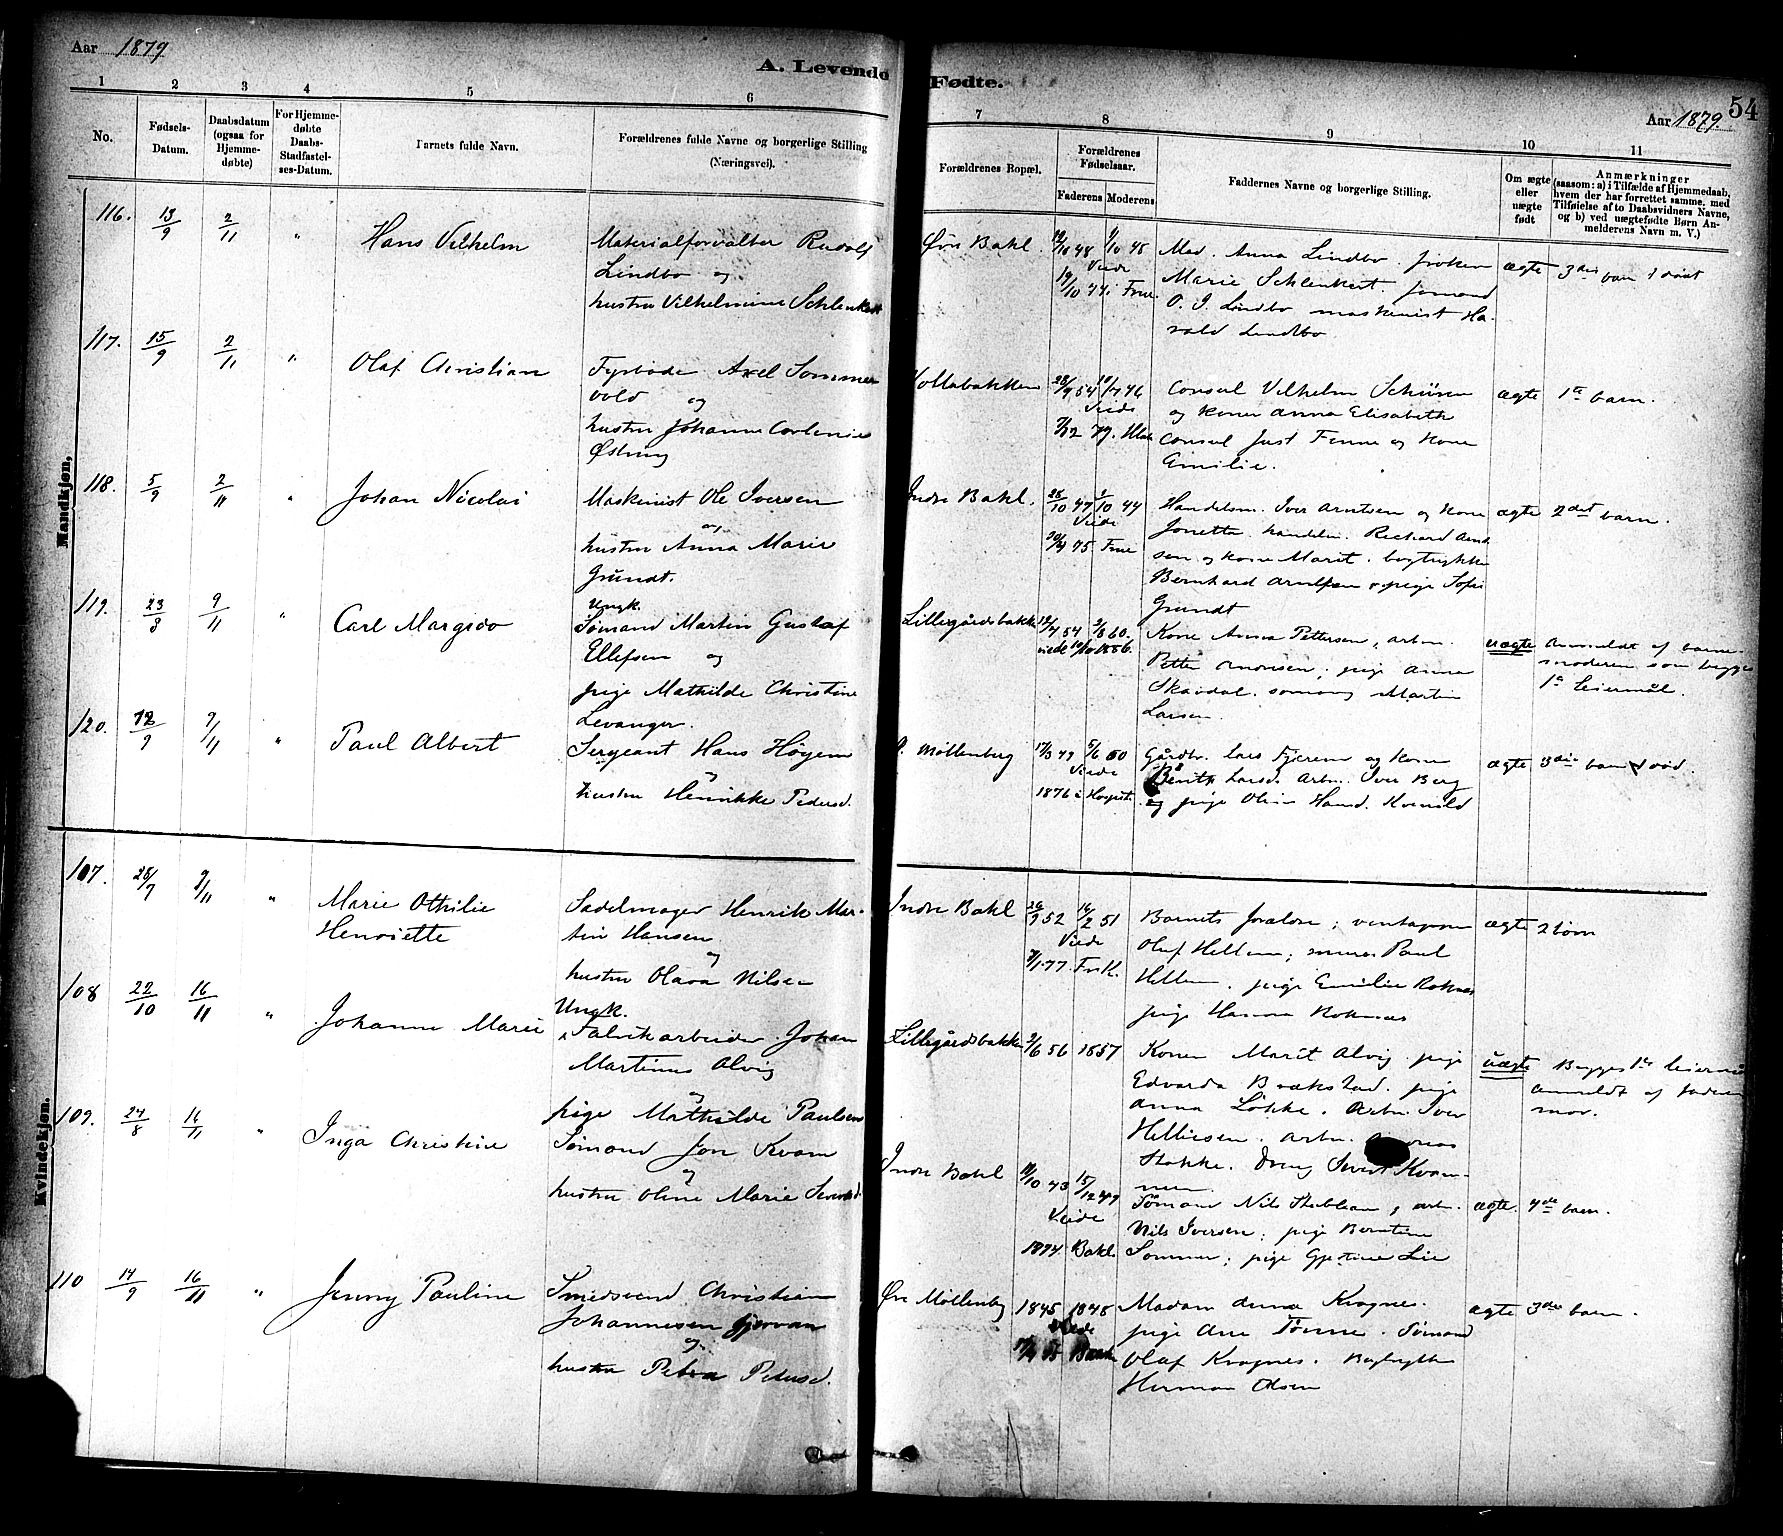 Aar 1879
A. Levende Fødte.
54
Aar 1879.
1 2 3 4 5 6 7 8 9 10 11
No.
Fødsels-
Datum.
Daabsdatum
(ogsaa for
Hjemme-
døbte)
For Hjemme-
døbte
Daabs-
Stadfæstel-
ses-Datum.
Barnets fulde Navn.
Forældrenes fulde Navne og borgerlige Stilling
(Næringsvei).
Forældrenes Bopæl.
Forældrenes
Fødselsaar.
Faderens Moderens
Faddernes Navne og borgerlige Stilling.
Om ægte
eller
uægte
født
Anmærkninger
(saasom: a) i Tilfælde af Hjemmedaab,
hvem der har forrettet samme, med
Tilføielse af to Daabsvidners Navne,
og b) ved uægtefødte Børn An-
melderens Navn m. V.)
Mandkjøn,
116. 13/9 2/11 " Hans Vilhelm
Materialforvalter Rudolf
Lindbo og
hustru Vilhelmine Schlenkert
Øvre Bakl.
Viede
Mad. Anna Lindbo. frøken
Marie Schlenkert. sømand
O. J. Lindbo maskinist Ha-
rald Lindbo
ægte 3die barn 1 død
117. 15/9 2/11 " Olaf Christian
Fyrbøde Axel Sommer
vold og
hustru Johanne
Østring
Viede
Consul Vilhelm
og kone Anna Elisabeth
Consul Just Finne og kone
Emilie.
ægte 1ste barn.
118. 5/9 2/11 " Johan Nicolai
Maskinist Ole Iversen
og
hustru Anna Marie
Grundt.
Indre Bakl.
Viede
Handelsm. Iver Arntsen og kone
Jonetta. handelsm. Richard
sen og kone Marit.
Bernhard og pige Sofie
Grundt
ægte 2det barn.
119. 23/8 9/11 " Carl Margido
Ungk.
Sømand Martin Gustaf
Ellefsen og
pige Mathilde Christine
Levanger.
Lillegårdsbakke
Kone Anna Pettersen, arbm.
Petter pige Anna
Skaidal. Martin
Larsen.
uægte Anmeldt af barne-
moderen som begges
1ste leiermål.
120. 12/9 9/11 " Paul Albert
Sergeant Hans Høyem
og
hustru Henrikke Pedersd.
Ø. Møllenberg
Viede
Gårdbr. Lars Fjærem og kone
Larsd. Arbm. Iver Berg
og pige
ægte 3die barn 1 død.
Kvindekjøn.
107. 28/7 9/11 " Marie Othilie
Henriette
Sadelmager Henrik Mar-
tin Hansen.
og
hustru Olava Nilsen
Indre Bakl
Viede
Barnets forældre;
Oluf Hellem; murer Paul
Hellem. pige Emilie Roknes
pige Hanna Roknæs
ægte 2 børn
108 22/10 16/11 " Johanne Marie
Ungk.
Fabrikarbeider Johan
Martinus Alvig
og
pige Mathilde Paulsen
Lillegårdsbakke 2/6 56 1857
Konen Marit Alvig. pige
Edvarda Brækstad. pige
Anna Løkke. Arbm. Iver
Helliesen. arbm.
Stokke. Dreng Sivert Kvam-
men.
uægte Begges 1ste leiermål
anmeldt af faderens
mor.
109. 24/8 16/11 " Inga Christine
Sømand Jon Kvam
og
hustru Oline Marie
Indre Bakl
Viede
1874 Bakl.
Sømand Nils Stabban, arbm.
Nils Iversen; pige Berntine
Sommer; pige Gjertine Lie
ægte. 4de barn.
110 14/9 16/11 " Jenny Pauline
Smedsvend Christian
Johannesen Gjervan
og
hustru Petra Pedersd.
Øvre Møllenbg 1845 1848
Viede
Madam Anna Kragnes.
pige Ane Tønne. Sømand
Olaf Kragnes. Bogtrykker
Herman Olsen
ægte 3die barn.